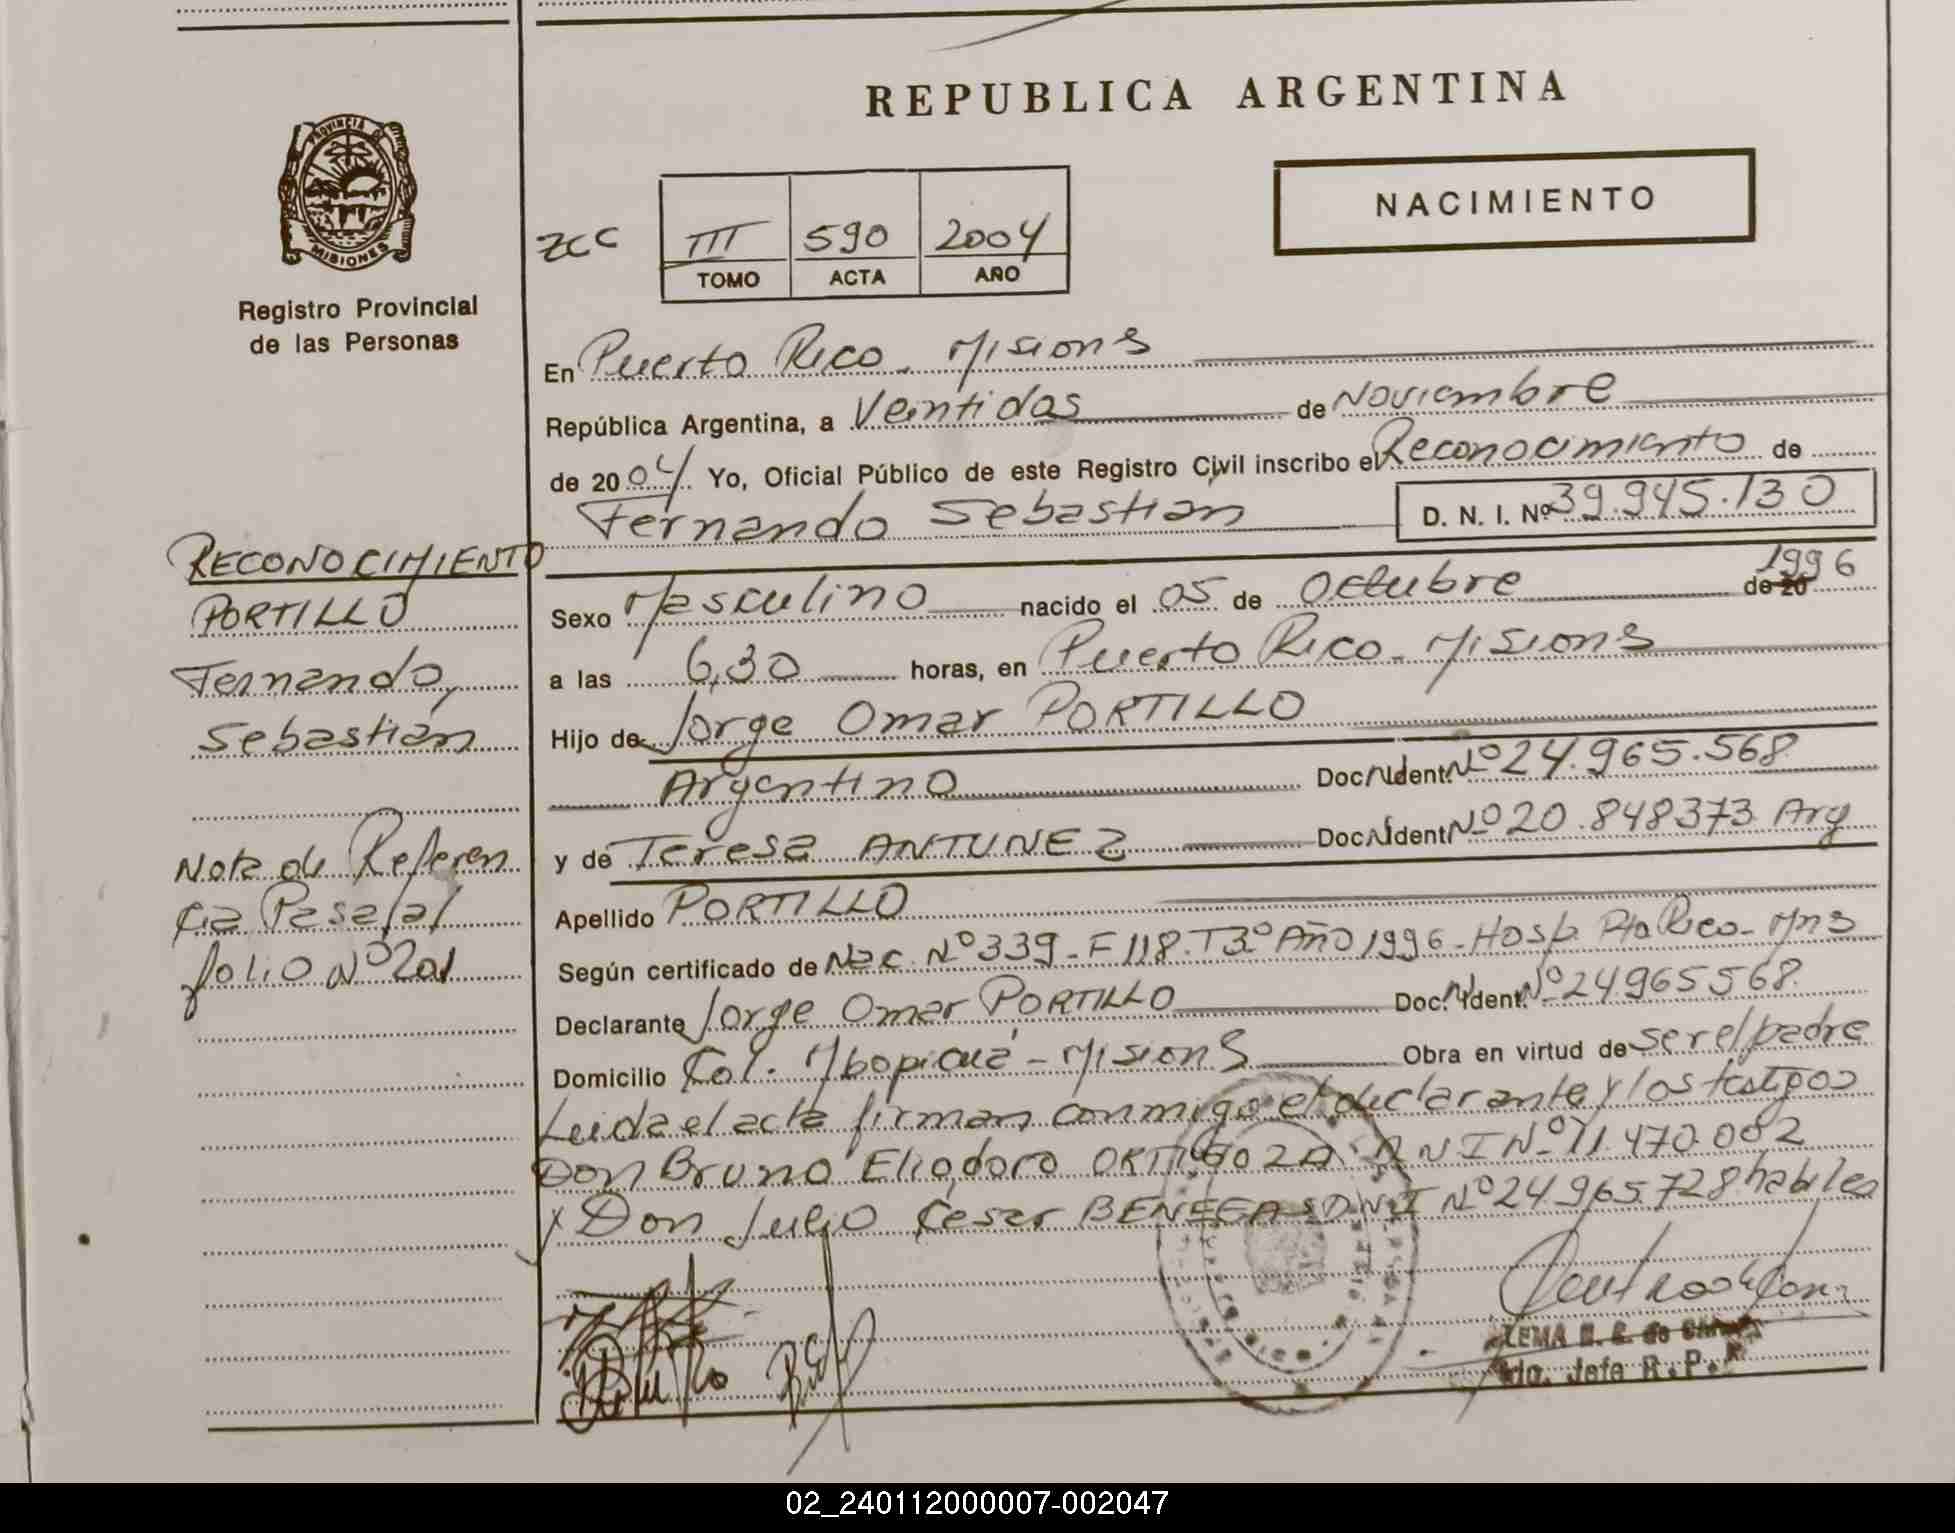 REPUBLICA ARGENTINA
PROVINCIA DE
MISIONES
Registro Provincial
de las Personas
NACIMIENTO
ZCC III 590 2004
TOMO ACTA AÑO
En Puerto Rico. Misions
República Argentina, a Veintidos de Noviembre
de 2004 Yo, Oficial Público de este Registro Civil inscribo el Reconocimiento de
Fernando Sebastian D. N. I. Nº 39.945.130
Sexo Masculino nacido el 05 de Octubre de 20 1996
a las 6,30 horas, en Puerto Rico - Misions
Hijo de Jorge Omar PORTILLO
Argentino Doc. Ident. Nº 24.965.568
y de Teresa ANTUNEZ Doc. Ident. Nº 20.848373 Arg
Apellido PORTILLO
Según certificado de Nac. Nº 339 - F 118. T3º Año 1996 - Hosp. Pto Rico - Mns
Declarante Jorge Omar PORTILLO Doc. Ident. Nº 24965568.
Domicilio Col. Mbopicuá - Misions Obra en virtud de ser el padre
Leida el acta firman conmigo el declarante y los testigos
Don Bruno Eliodoro ORTIGOZA DNI Nº 11.470.002
y Don Julio Cesar BENEGAS D.N.I Nº 24.965.728 habiles
RECONOCIMIENTO
PORTILLO
Fernando,
Sebastián
Nota de Referen
cia Pasa al
folio Nº 201
ZEMA
Jefe R.P.
02_240112000007-002047